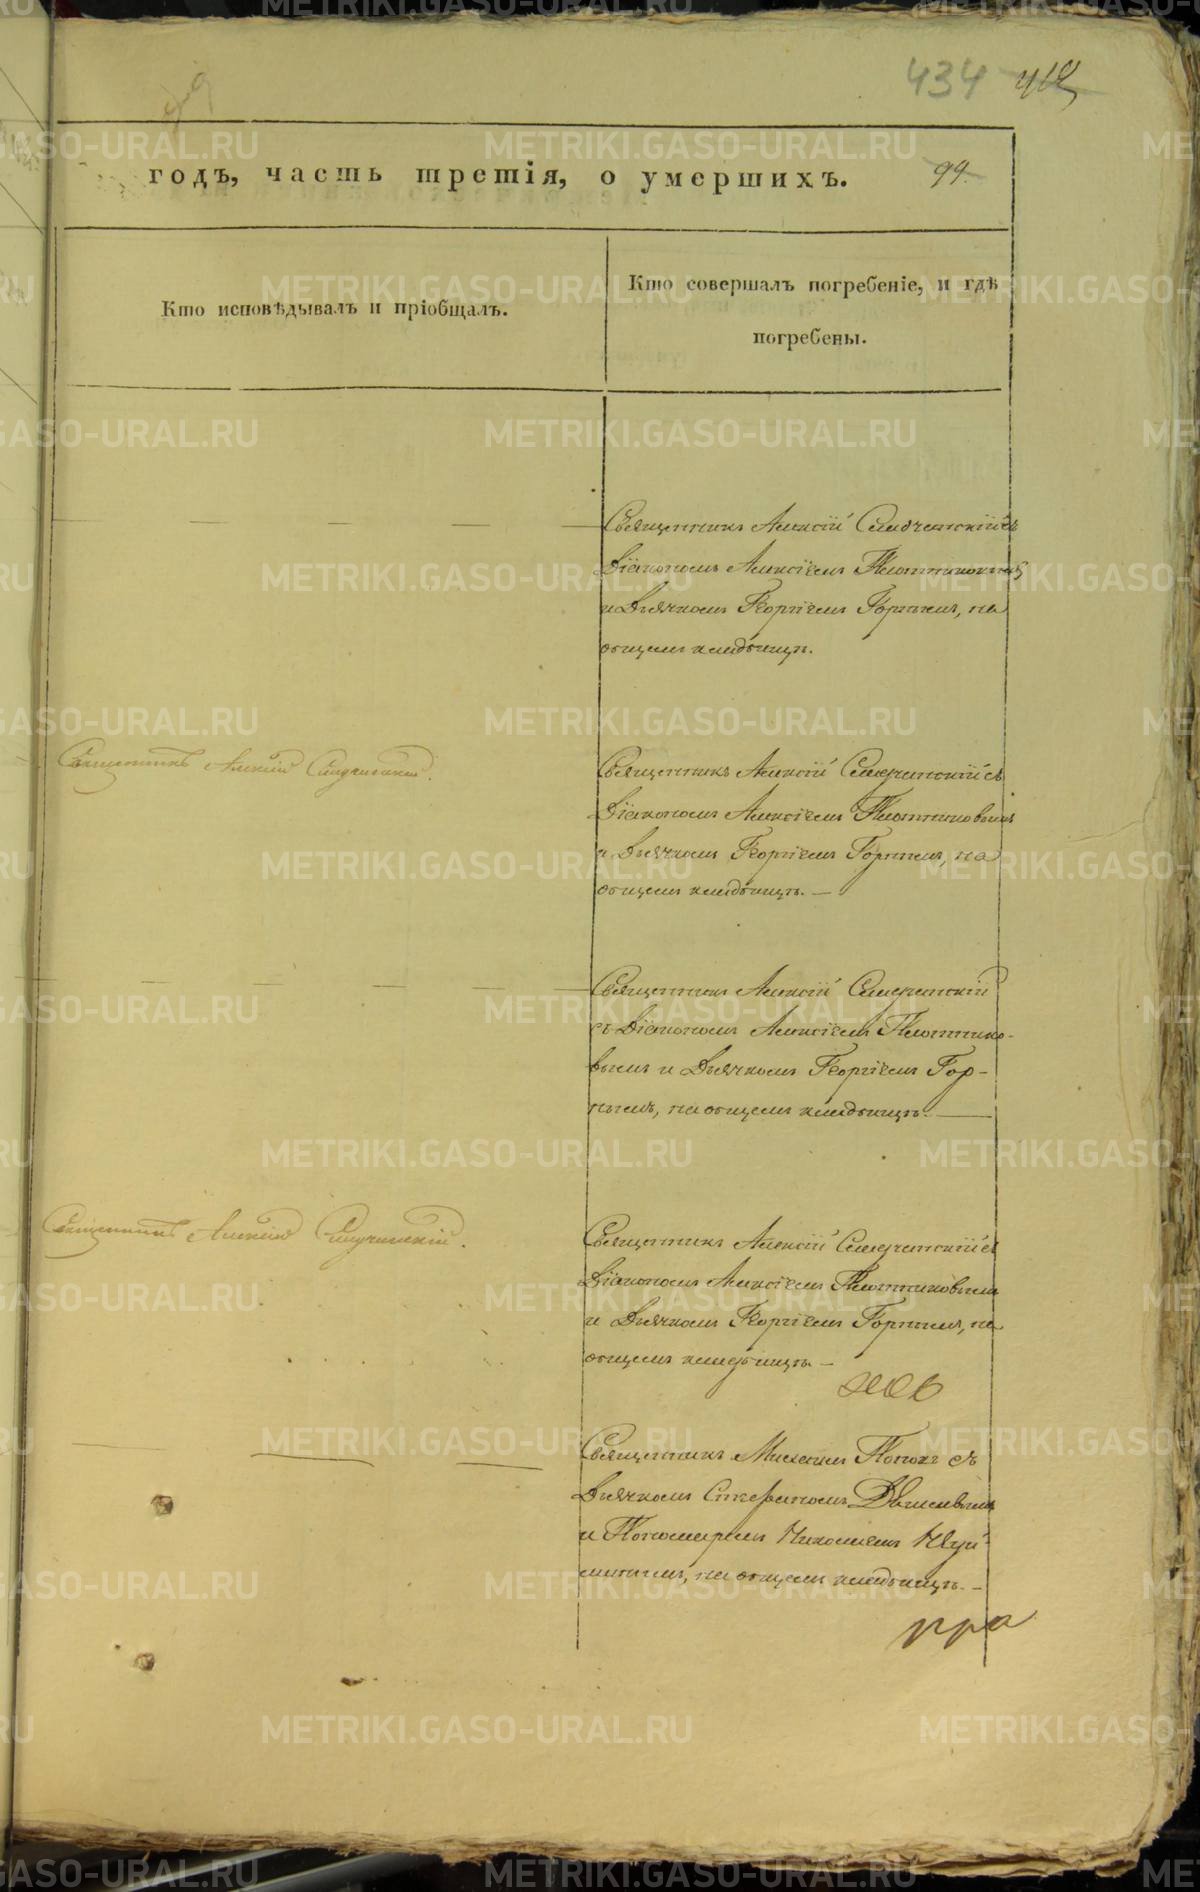 434
годъ, часть третія, о умершихъ. 94.
Кто исповѣдывалъ и пріобщалъ.
Кто совершалъ погребеніе, и гдѣ
погребены.
Священникъ Алексій съ
Діакономъ Алексіемъ
и Дьячкомъ Георгіемъ Горнымъ, на
общемъ кладбищѣ.
Священникъ Алексій
Священникъ Алексій съ
Діакономъ Алексіемъ Плотниковымъ
и Дьячкомъ Георгіемъ Горнымъ, на
общемъ кладбищѣ. —
Священникъ Алексій
съ Діакономъ Алексіемъ Плотнико-
вымъ и Дьячкомъ Георгіемъ Гор-
нымъ, на общемъ кладбищѣ. —
Священникъ Алексій
Священникъ Алексій съ
Діакономъ Алексіемъ Плотниковымъ
и Дьячкомъ Георгіемъ Горнымъ, на
общемъ кладбищѣ. —
Священникъ Михаилъ Поповъ съ
Дьячкомъ Стефаномъ
и Пономаремъ Николаемъ
на общемъ кладбищѣ. —
METRIKI.GASO-URAL.RU